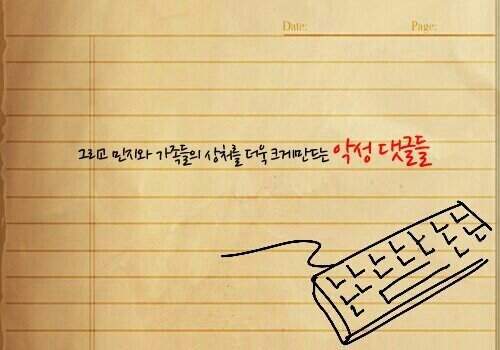 Date: Page:
그리고 민지와 가족들의 상처를 더욱 크게만드는 악성 댓글들